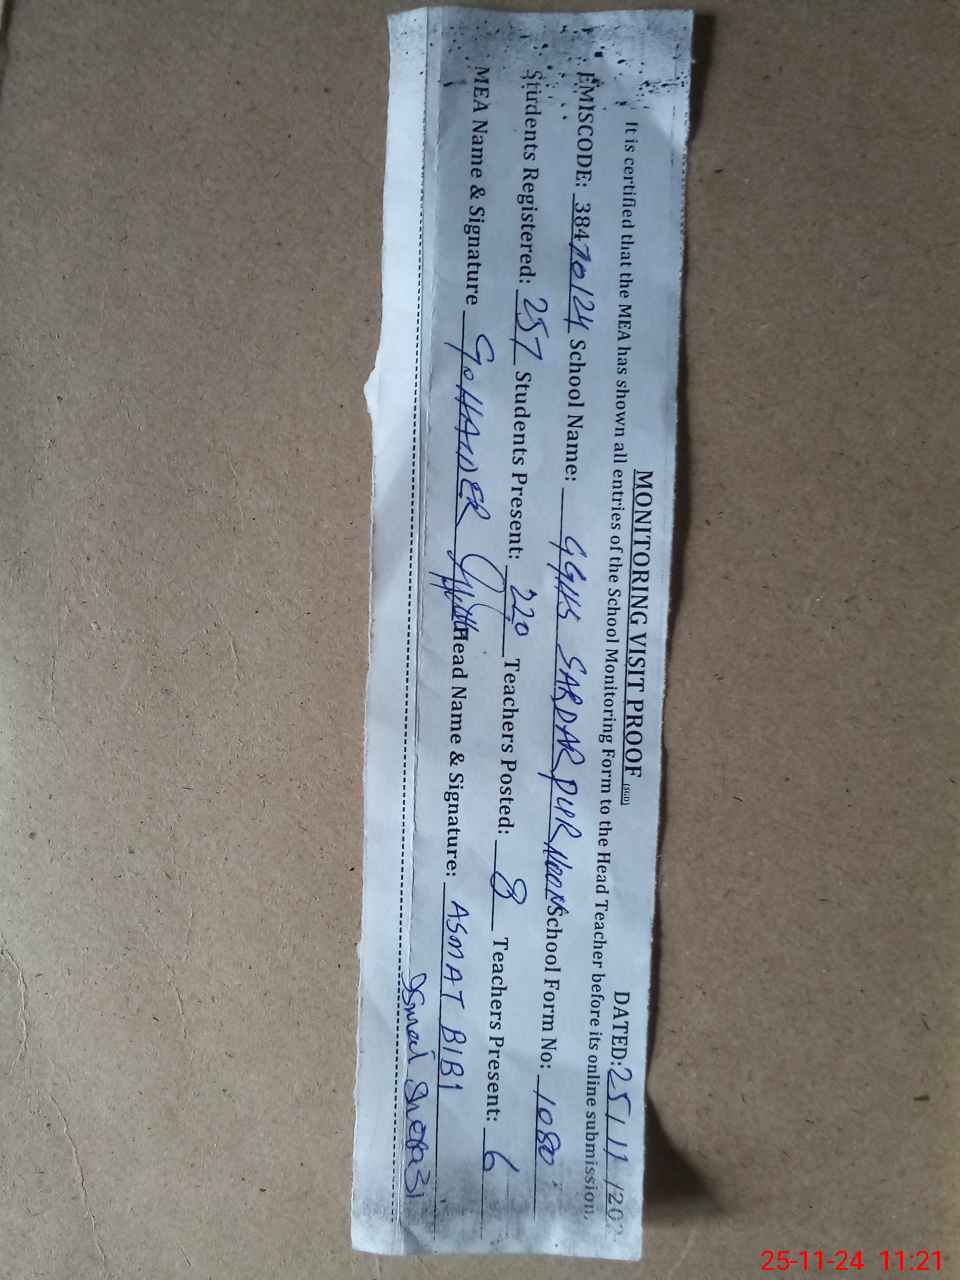 MONITORING VISIT PROOF (SED) DATED: 25/11/202
It is certified that the MEA has shown all entries of the School Monitoring Form to the Head Teacher before its online submission.
EMISCODE: 38470124 School Name: GGHS SARDAR PUR NOON School Form No: 1080
Students Registered: 257 Students Present: 220 Teachers Posted: 8 Teachers Present: 6
MEA Name & Signature G. HAIDER Head Name & Signature: ASMAT BIBI
25-11-24 11:21